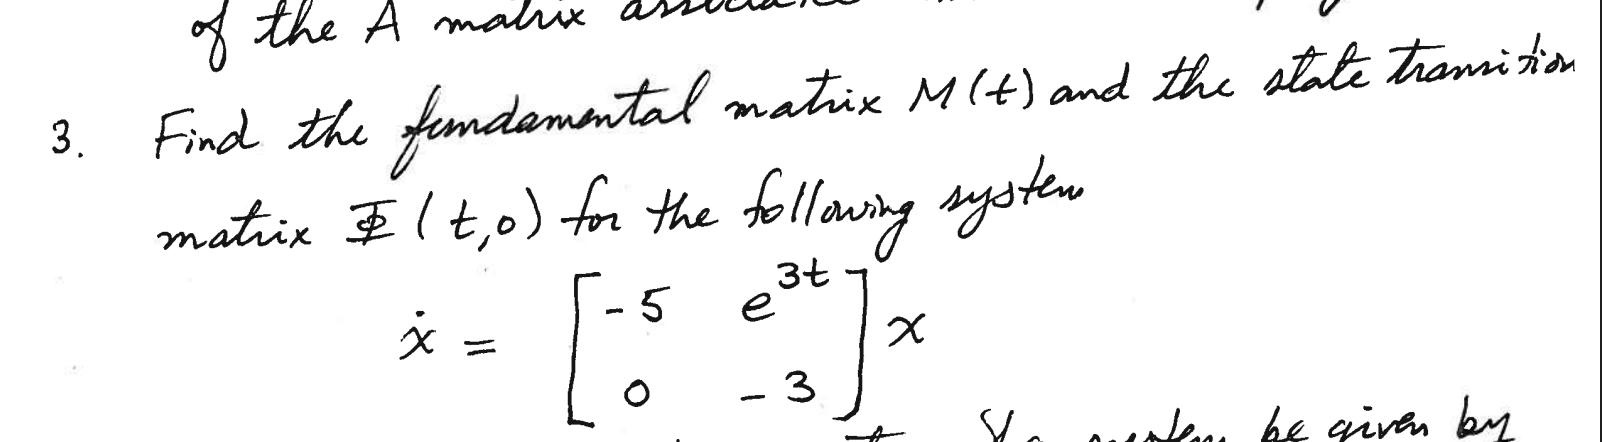 of the A matrix
3. Find the fundamental matrix M(t) and the state transition
matrix Φ(t,0) for the following system
ẋ = [ -5 e^{3t} ] x
[ 0 -3 ]
be given by